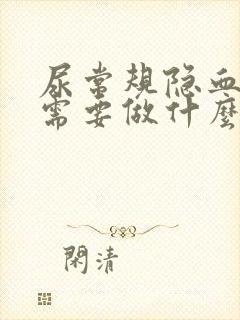 尿常规隐血
需要做什麼
閑清